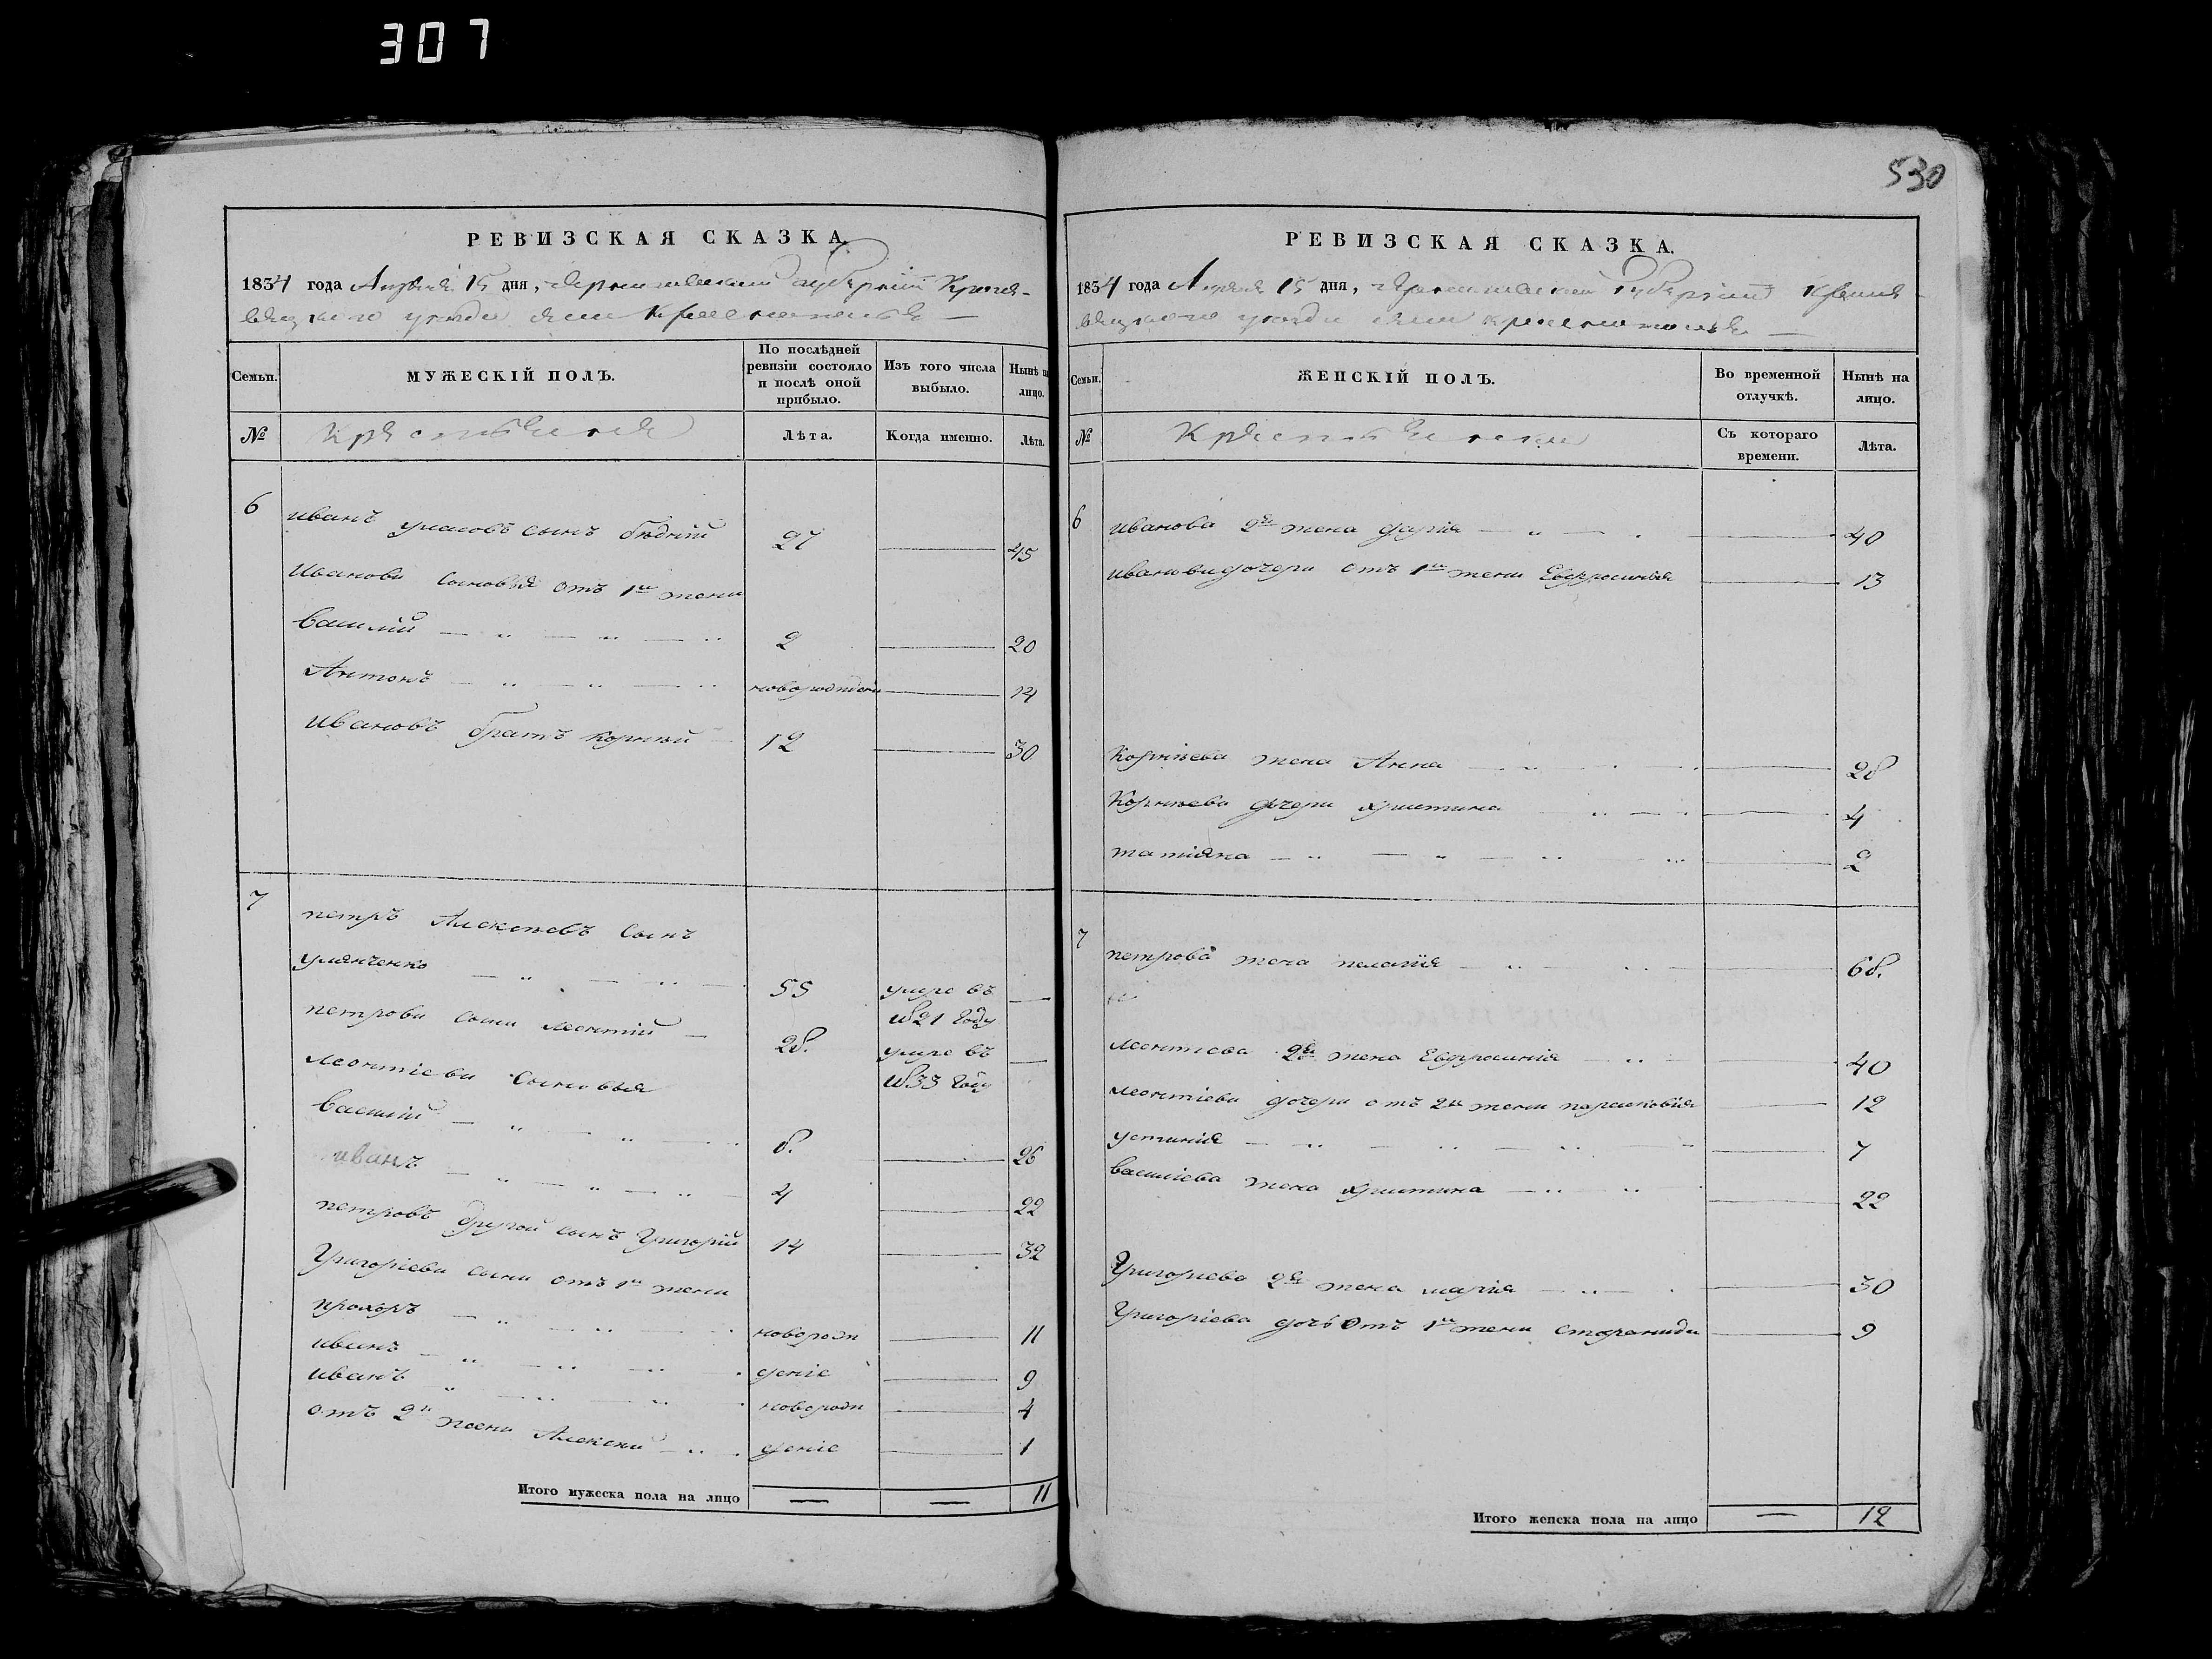 307
530
РЕВИЗСКАЯ СКАЗКА.
1834 года Апреля 15 дня, Черниговской губернии Кроле-
вецкого уезда села
Семьи.
МУЖЕСКІЙ ПОЛЪ.
По послѣдней ревизіи состояло и послѣ оной прибыло.
Изъ того числа выбыло.
Нынѣ на лицо.
№
Крестьяне
Лѣта.
Когда именно.
Лѣта.
6 иванъ сынъ бѣдній 27 — 45
Иванови сыновья отъ 1й жени
василій — „ — „ — „ 2 — 20
Антонъ — „ — „ — „ новорожденъ — 14
Ивановъ братъ корнѣй 12 — 30
7 петръ Алексѣевъ сынъ
улянченко — „ — „ — 55 умре въ —
1821 году
петрови сыни леонтій — 28. умре въ —
1833 году
леонтіеви сыновья
василій — „ — „ — 8. — 26
иванъ — „ — „ — „ — 4 — 22
петровъ другой сынъ Григорій 14 — 32
Григоріеви сыни отъ 1й жени
прохоръ — „ — „ — новорож — 11
иванъ — „ — „ — „ деніе — 9
иванъ „ — „ — „ новорож — 4
отъ 2й жени Алексѣй — „ деніе — 1
Итого мужеска пола на лицо — — 11
РЕВИЗСКАЯ СКАЗКА.
1834 года Апреля 15 дня, Черниговской Губерніи Кроле-
вецкого уезда села
Семьи.
ЖЕНСКІЙ ПОЛЪ.
Во временной отлучкѣ.
Нынѣ на лицо.
№
Крестьянки
Съ котораго времени.
Лѣта.
6 иванова 2я жена дарія — „ — 40
иванови дочери отъ 1й жени Евфросинія — 13
Корнѣева жена Анна — „ — 28
Корнѣеви дочери христина „ — 4
татіяна — „ — „ — „ — 2
7 петрова жена пелагія — „ — 68.
леонтіева 2я жена Евфросинія „ — 40
леонтіеви дочери отъ 2й жени парасковія — 12
устинія — „ — „ — „ — 7
василіева жена христина — „ „ — 22
Григоріева 2я жена марія — „ — 30
Григоріева дочь отъ 1й жени степанида — 9
Итого женска пола на лицо — 12